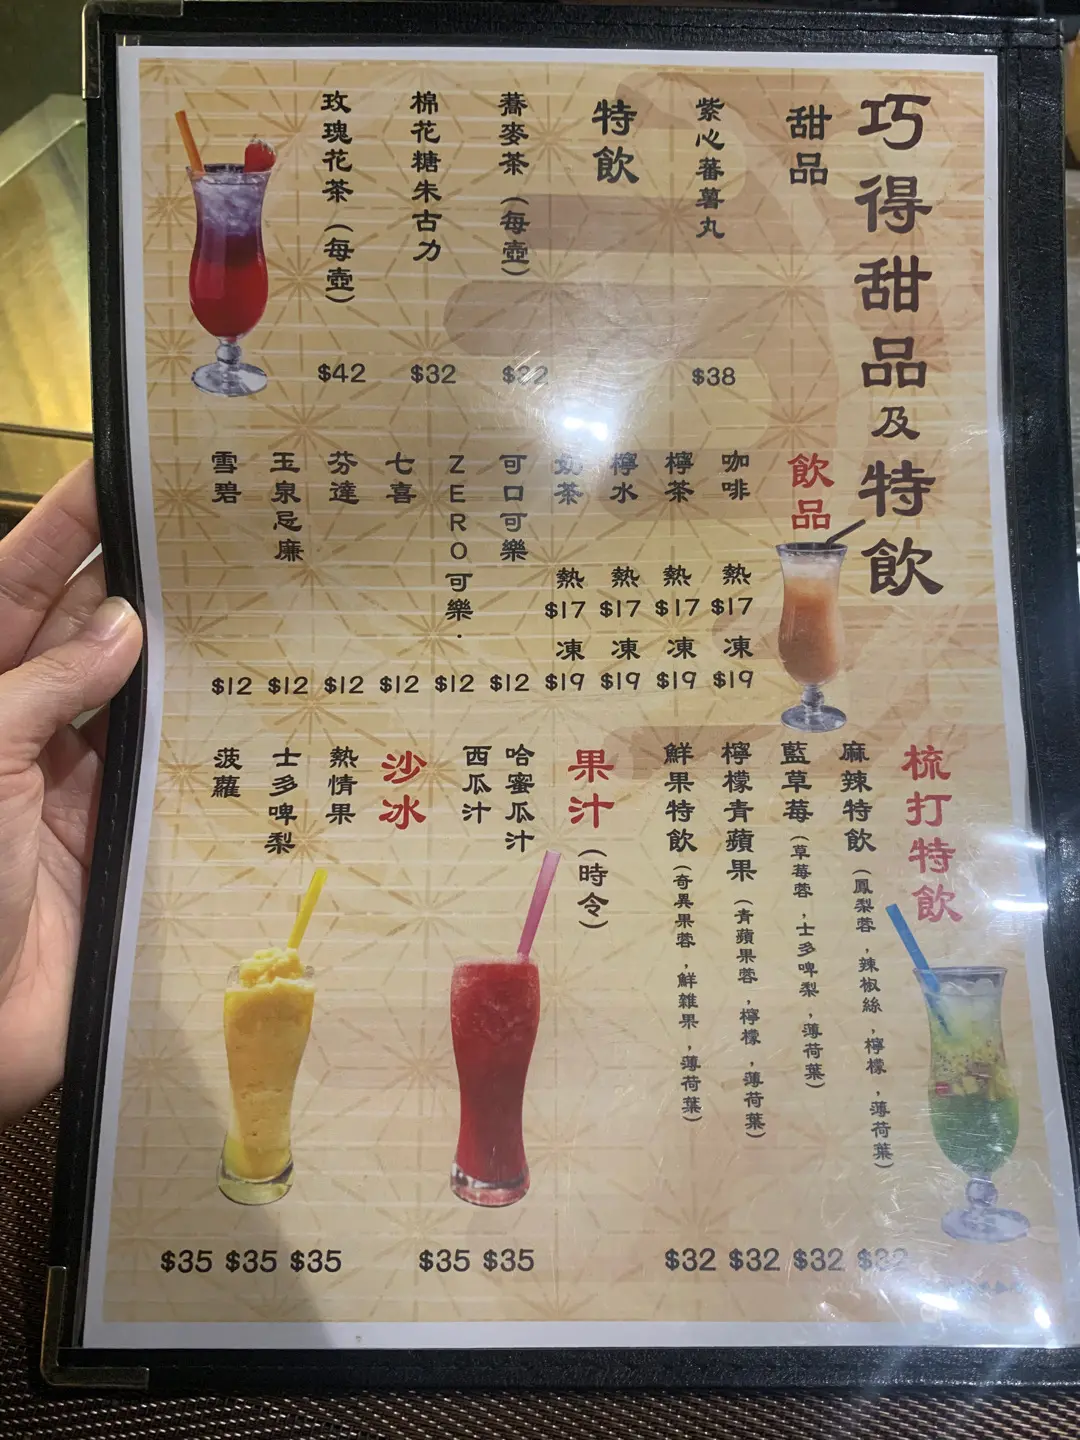 巧得甜品及特飲
甜品
紫心蕃薯丸 $38
特飲
蕎麥茶（每壺） $32
棉花糖朱古力 $32
玫瑰花茶（每壺） $42
飲品
咖啡 熱 $17 凍 $19
檸茶 熱 $17 凍 $19
檸水 熱 $17 凍 $19
奶茶 熱 $17 凍 $19
可口可樂 $12
ZERO可樂． $12
七喜 $12
芬達 $12
玉泉忌廉 $12
雪碧 $12
梳打特飲
麻辣特飲（鳳梨蓉，辣椒絲，檸檬，薄荷葉） $32
藍草莓（草莓蓉，士多啤梨，薄荷葉） $32
檸檬青蘋果（青蘋果蓉，檸檬，薄荷葉） $32
鮮果特飲（奇異果蓉，鮮雜果，薄荷葉） $32
果汁（時令）
哈蜜瓜汁 $35
西瓜汁 $35
沙冰
熱情果 $35
士多啤梨 $35
菠蘿 $35